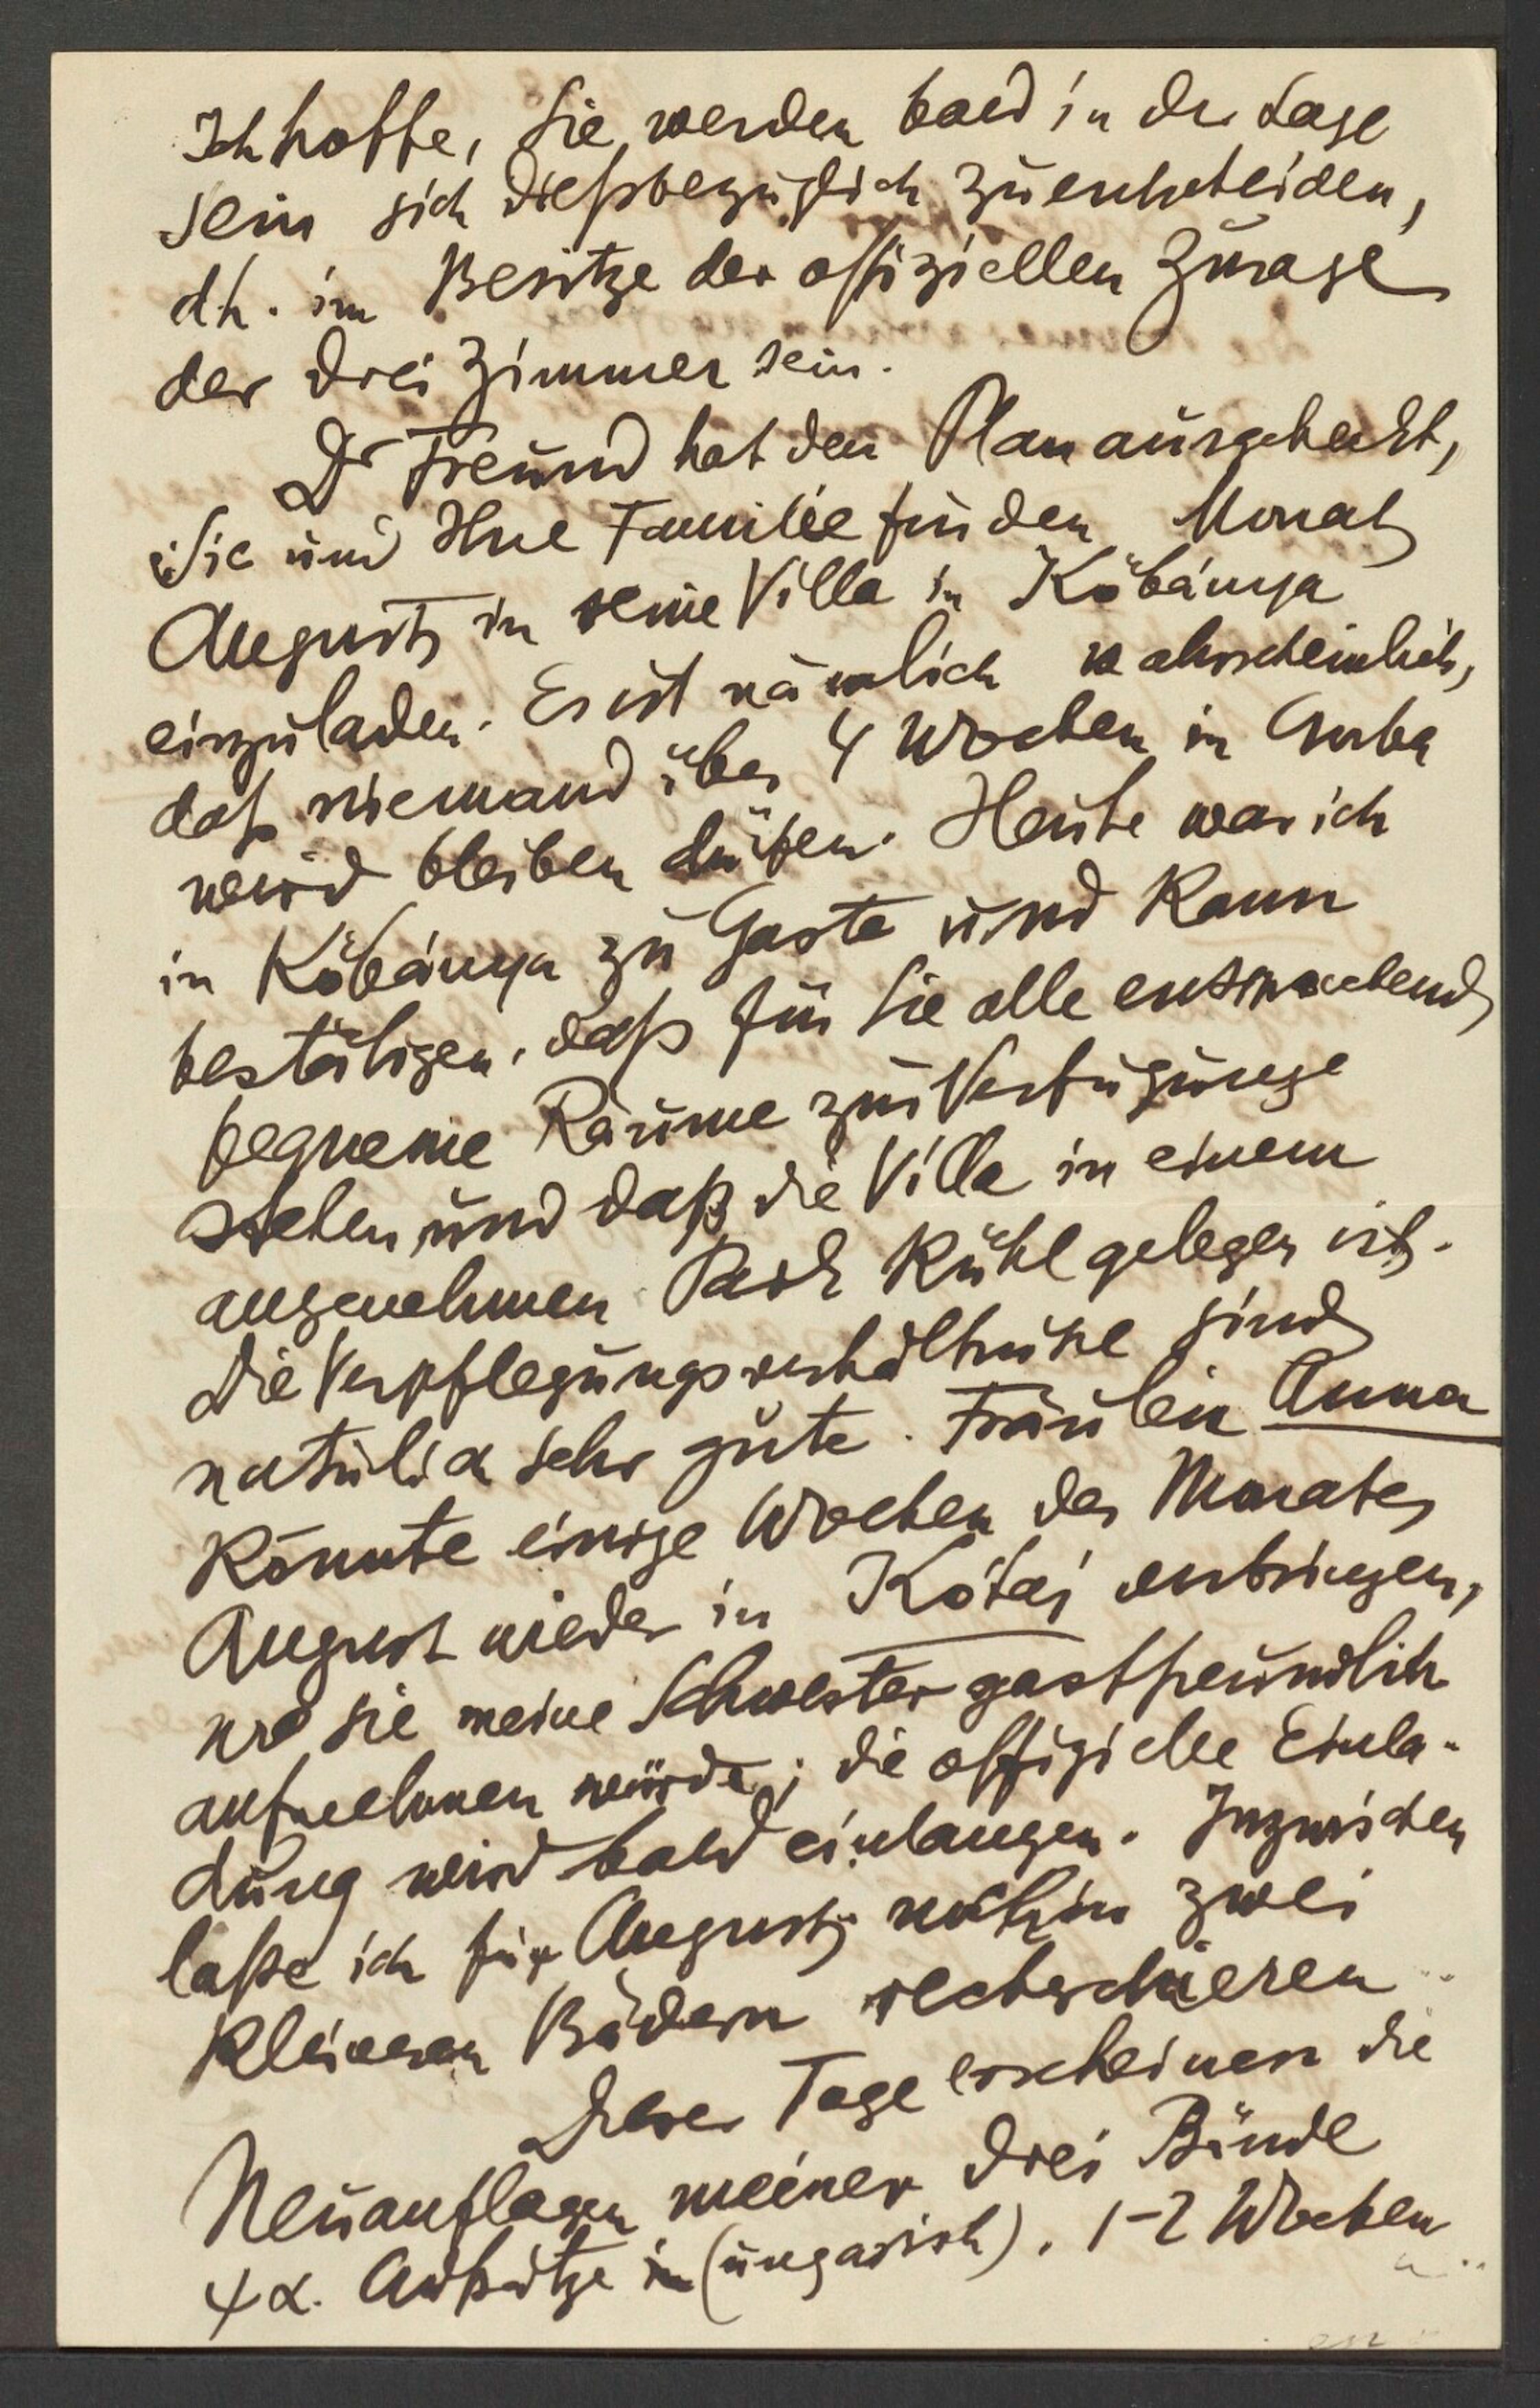 Ich hoffe, Sie werden bald in der Lage
sein sich dießbezüglich zu entscheiden,
dh. im Besitze der offiziellen Zusage
der drei Zimmer sein.
Dr Freund hat den Plan ausgeheckt,
Sie und Ihre Familie für den Monat
August in seine Villa in Köbánya
einzuladen. Es ist nämlich wahrscheinlich,
daß niemand über 4 Wochen in Csorba
wird bleiben dürfen. Heute war ich
in Köbánya zu Gaste und kann
bestätigen, daß für Sie alle entsprechend
bequeme Räume zur Verfügung
stehen und daß die Villa in einem
angenehmen Park kühl gelegen ist.
Die Verpflegungsverhältniße sind
natürlich sehr gute. Fräulein Anna
könnte einige Wochen des Monates
August wieder in Kótaj verbringen,
wo sie meine Schwester gastfreundlich
aufnehmen würde; die offizielle Einla-
dung wird bald einlangen. Inzwischen
laße ich für August in zwei
kleineren Bädern recherchieren
Dieser Tage erscheinen die
Neuauflagen meiner drei Bände
ψα. Aufsätze (ungarisch). 1-2 Wochen